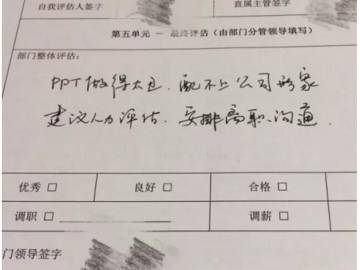 自我评估人签字 直属主管签字
第五单元 — 最终评估（由部门分管领导填写）
部门整体评估：
PPT做得太丑，配不上公司形象
建议人力评估，安排离职沟通
优秀 □ 良好 □ 合格 □
调职 □ 调薪 □
门领导签字